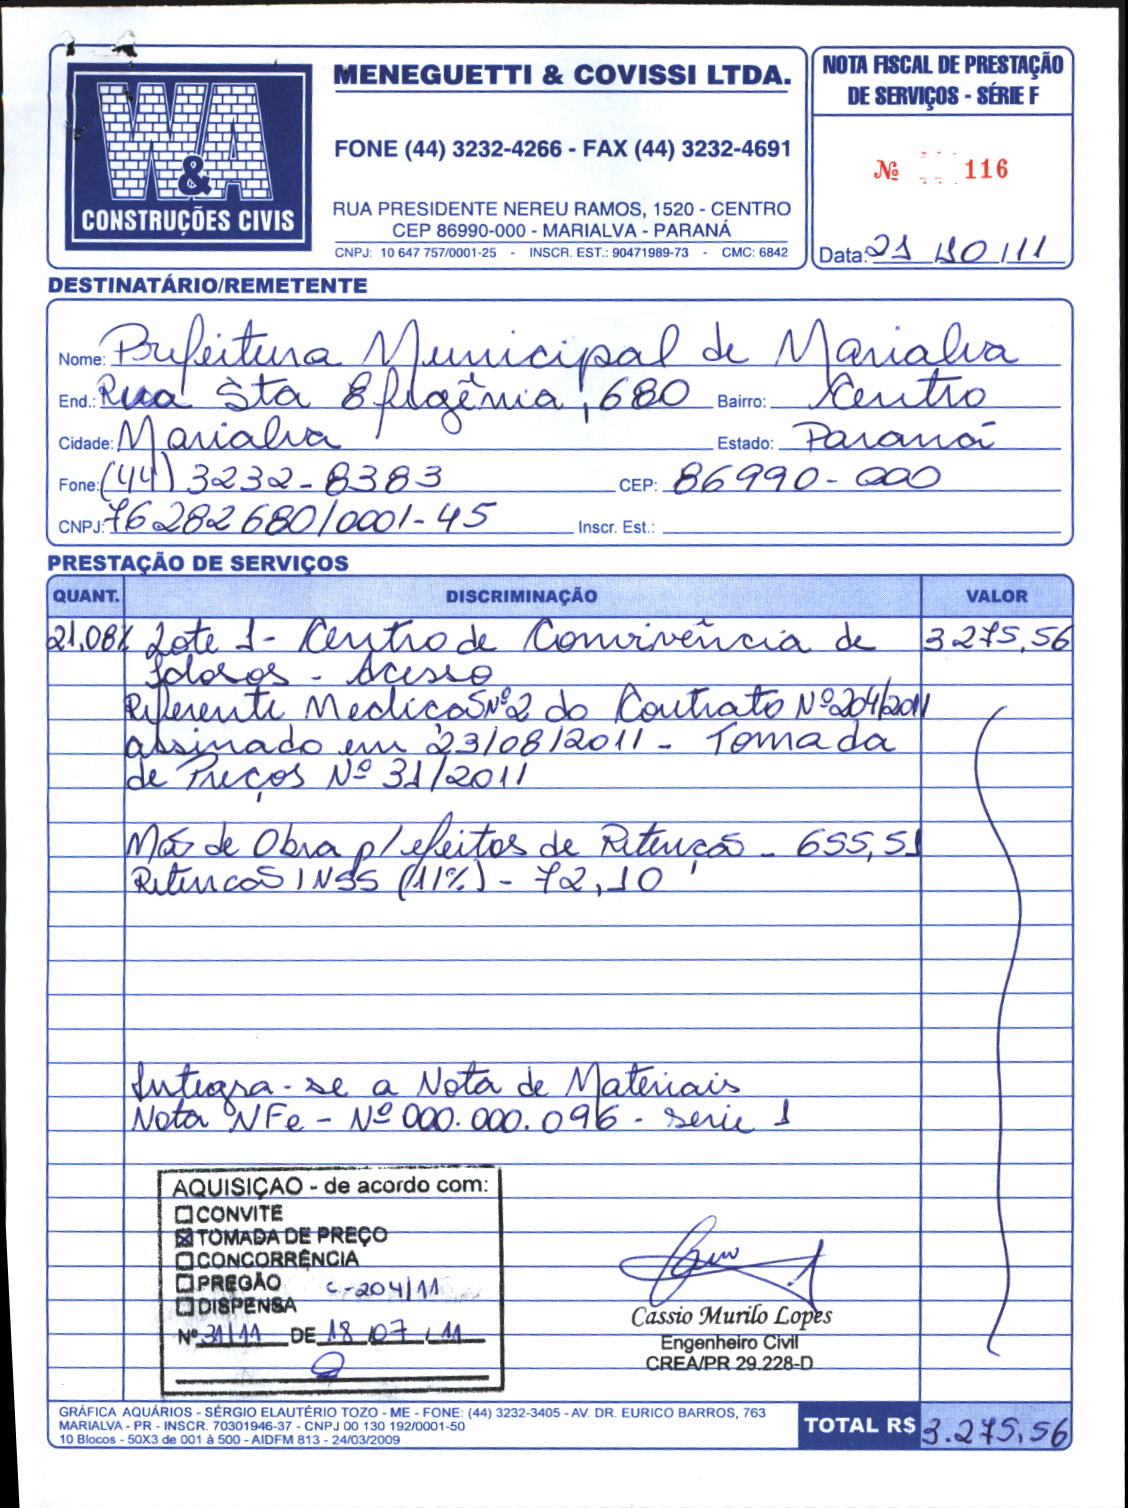 W&A
CONSTRUÇÕES CIVIS
MENEGUETTI & COVISSI LTDA.
FONE (44) 3232-4266 - FAX (44) 3232-4691
RUA PRESIDENTE NEREU RAMOS, 1520 - CENTRO
CEP 86990-000 - MARIALVA - PARANÁ
CNPJ: 10 647 757/0001-25 - INSCR. EST.: 90471989-73 - CMC: 6842
NOTA FISCAL DE PRESTAÇÃO
DE SERVIÇOS - SÉRIE F
Nº 116
Data: 21/10/11
DESTINATÁRIO/REMETENTE
Nome: Prefeitura Municipal de Marialva
End.: Rua Sta Efigênia, 680 Bairro: Centro
Cidade: Marialva Estado: Paraná
Fone: (44) 3232-8383 CEP: 86990-000
CNPJ: 76282680/0001-45 Inscr. Est.:
PRESTAÇÃO DE SERVIÇOS
QUANT. DISCRIMINAÇÃO VALOR
21,08% Lote 1 - Centro de Convivência de 3275,56
Idosos - Acesso
Referente Medição Nº2 do Contrato Nº204/2011
assinado em 23/08/2011 - Tomada
de Preços Nº 31/2011
Mão de Obra p/ efeitos de Retenção - 655,51
Retenção INSS (11%) - 72,10
Integra-se a Nota de Materiais
Nota NFe - Nº 000.000.096 - serie 1
AQUISIÇÃO - de acordo com:
CONVITE
TOMADA DE PREÇO
CONCORRÊNCIA
PREGÃO C-204/11
DISPENSA
Nº 31/11 DE 18/07/11
Cassio Murilo Lopes
Engenheiro Civil
CREA/PR 29.228-D
GRÁFICA AQUÁRIOS - SÉRGIO ELAUTÉRIO TOZO - ME - FONE: (44) 3232-3405 - AV. DR. EURICO BARROS, 763
MARIALVA - PR - INSCR. 70301946-37 - CNPJ 00 130 192/0001-50
10 Blocos - 50X3 de 001 à 500 - AIDFM 813 - 24/03/2009
TOTAL R$ 3.275,56